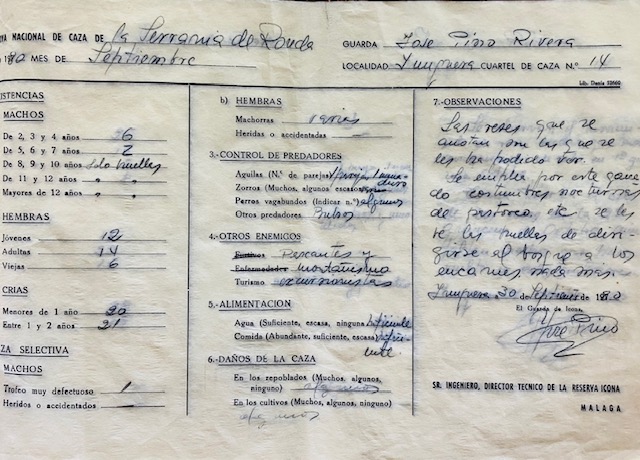 VA NACIONAL DE CAZA DE la Serrania de Ronda
1980 MES DE Septiembre
GUARDA Jose Pino Rivera
LOCALIDAD Yunquera CUARTEL DE CAZA N.º 14
Lib. Denis
ISTENCIAS
MACHOS
De 2, 3 y 4 años 6
De 5, 6 y 7 años 2
De 8, 9 y 10 años Solo huellas
De 11 y 12 años " "
Mayores de 12 años " "
HEMBRAS
Jóvenes 12
Adultas 14
Viejas 6
CRIAS
Menores de 1 año 20
Entre 1 y 2 años 21
ZA SELECTIVA
MACHOS
Trofeo muy defectuoso 1
Heridos o accidentados —
b) HEMBRAS
Machorras varias
Heridas o accidentadas —
3.-CONTROL DE PREDADORES
Aguilas (N.º de parejas)
Zorros (Muchos, algunos, escasos)
Perros vagabundos (Indicar n.º) algunos
Otros predadores
4.-OTROS ENEMIGOS
Furtivos y
Enfermedades montañismo
Turismo excursionistas
5.-ALIMENTACION
Agua (Suficiente, escasa, ninguna)
Comida (Abundante, suficiente, escasa) sufi-
ciente
6.-DAÑOS DE LA CAZA
En los repoblados (Muchos, algunos,
ninguno) algunos
En los cultivos (Muchos, algunos, ninguno)
algunos
7.-OBSERVACIONES
Las reses que se
anotan son las que se
les ha podido ver.
Se emplea por este gana
do costumbres nocturnas
de pastoreo, etc se les
ve las huellas de diri-
girse al bosque a los
nada mas.
Yunquera 30 de Septiembre de 1980
El Guarda de Icona,
José Pino
SR. INGENIERO, DIRECTOR TECNICO DE LA RESERVA ICONA
MALAGA